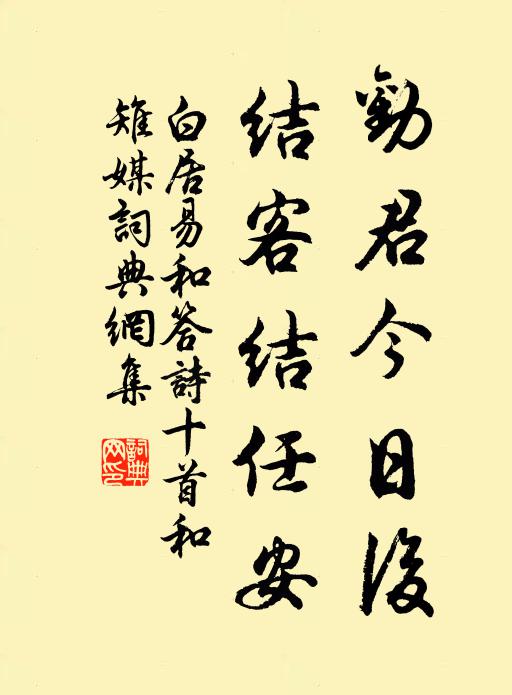 勸君今日後
結客結任安
白居易和答詩十首和
雉媒詞典網集
詞典
网印